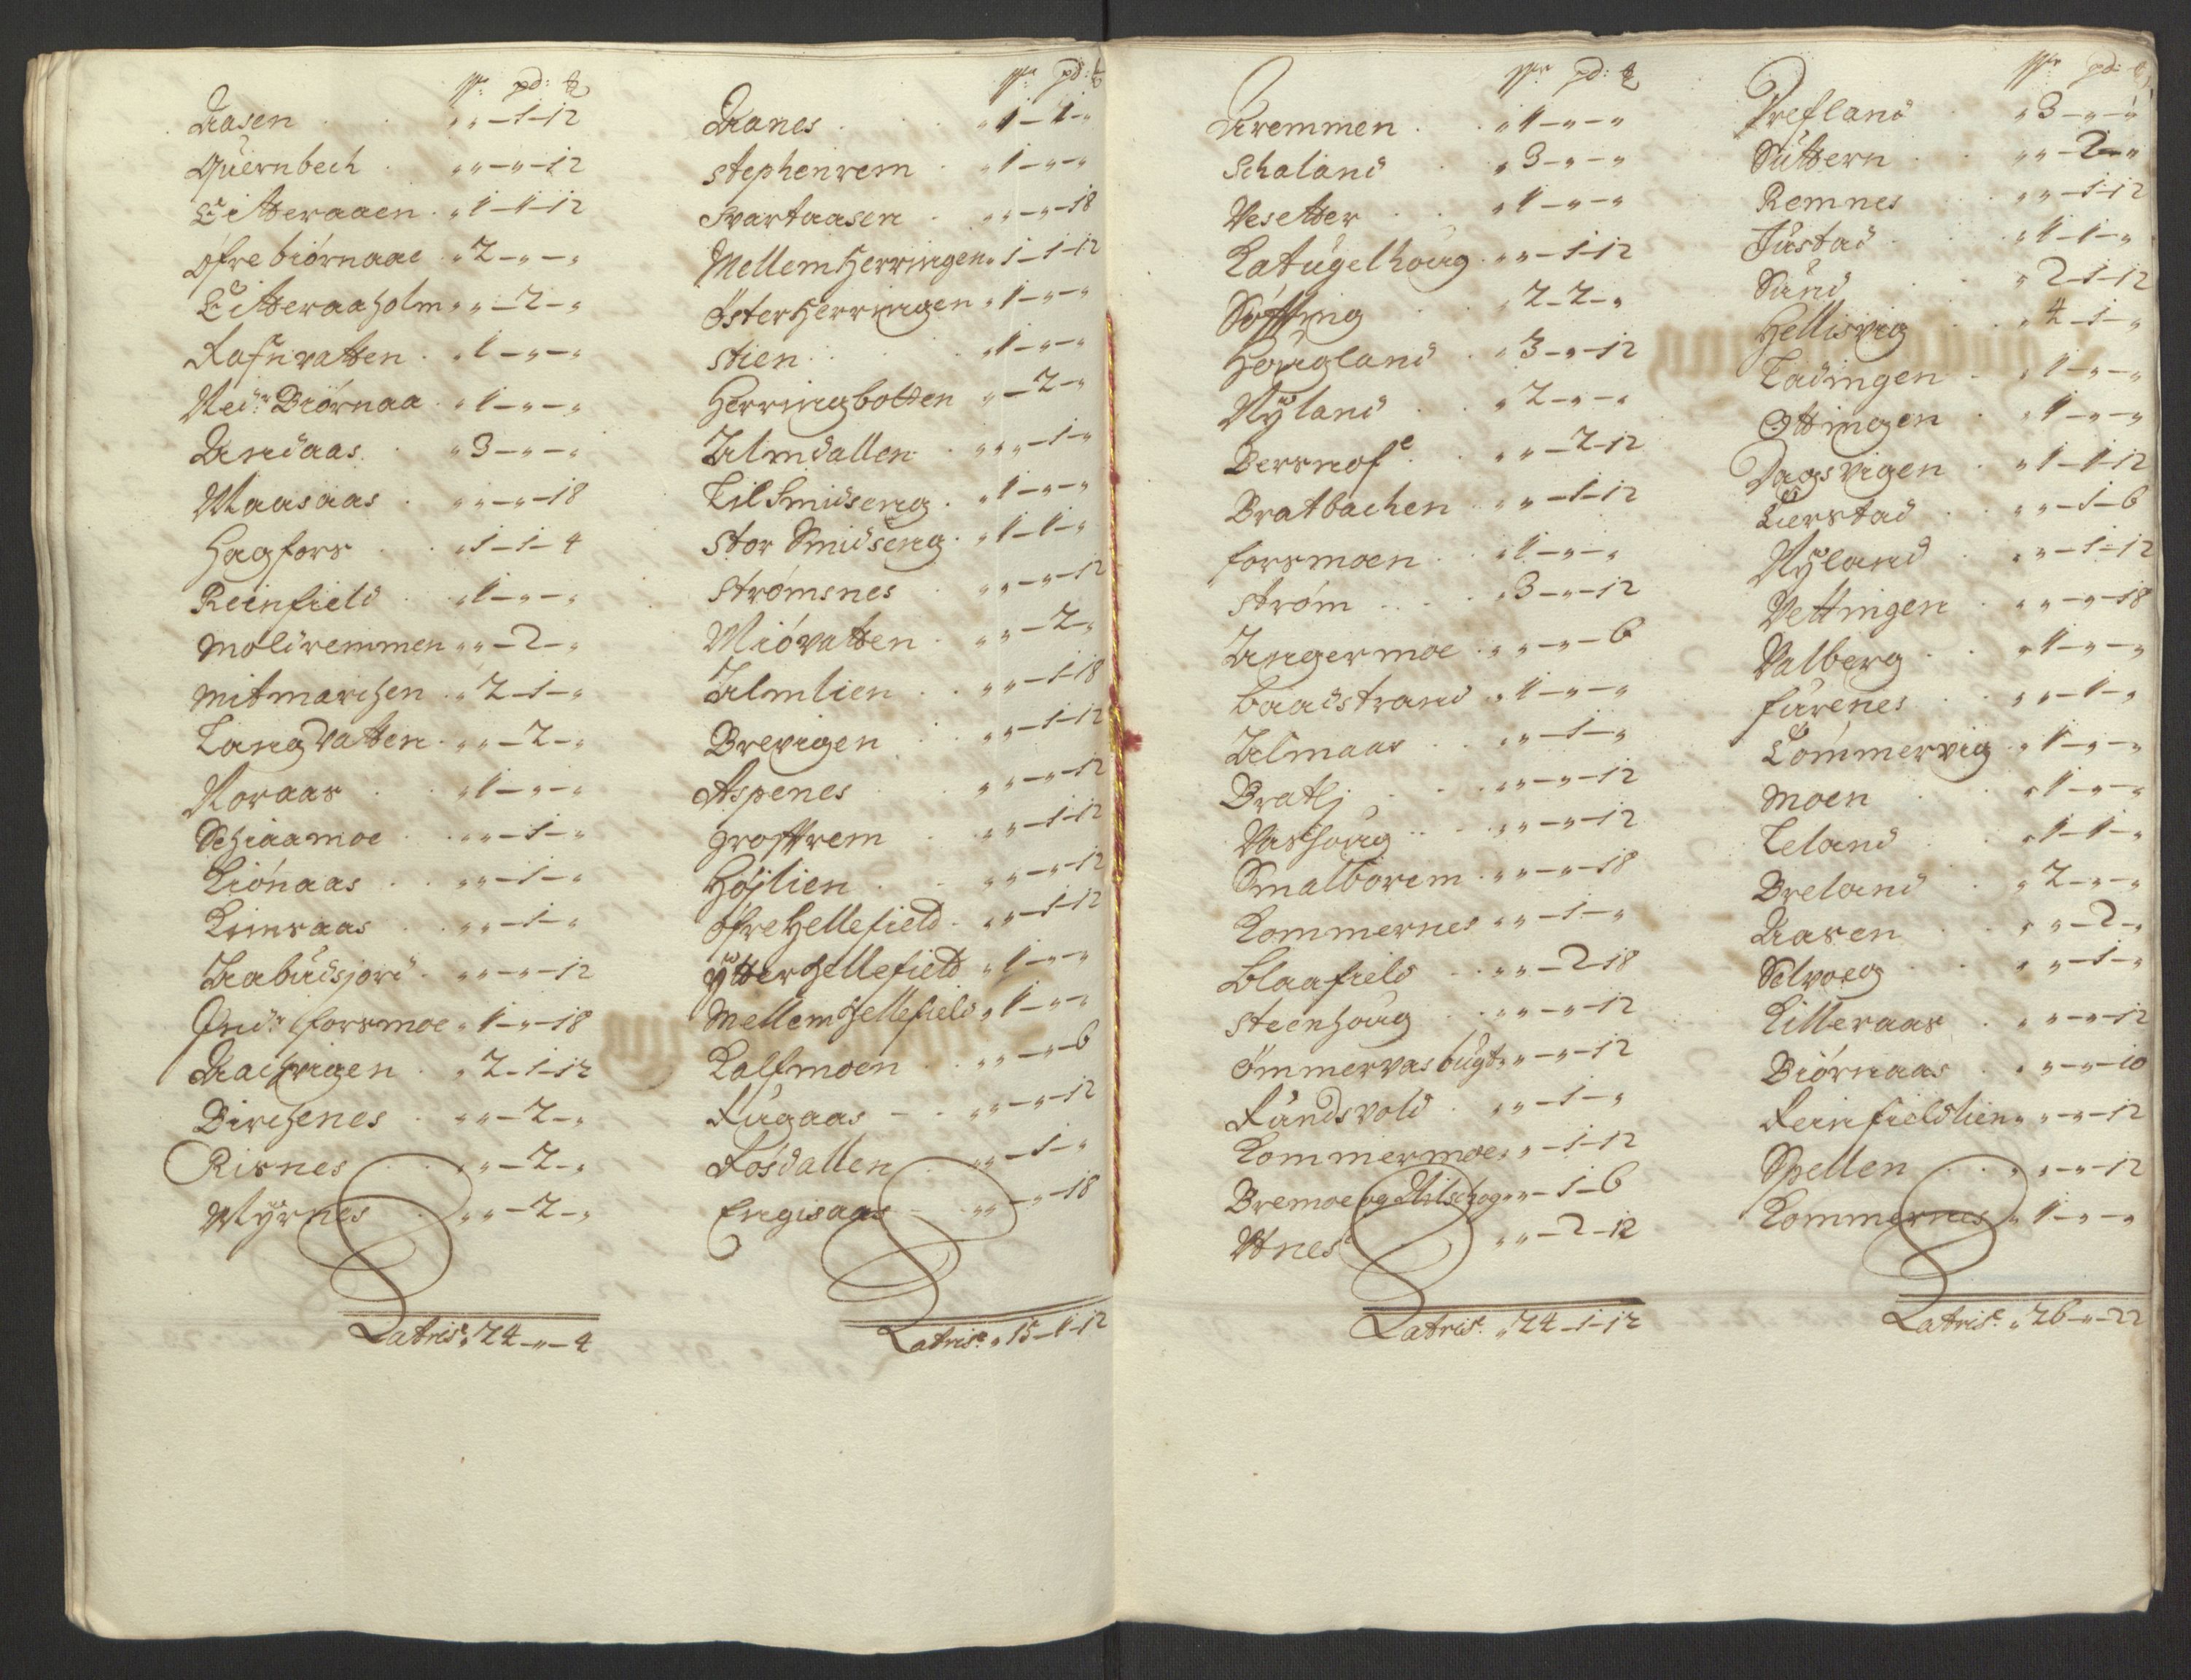 spr: pd: ℔
Aasen „ „ – 1 – 12
Quernbech „ „ – „ – 12
Litteraaen „ 1 – 1 – 12
Øfrebiórnaae „ 2 – „ – „
Litteraaholm „ „ – 2 – „
Rafnvatten „ 1 – „ – „
Nedr Biórnaa „ 1 – „ – „
Andaas „ 3 – „ – „
Maasaas „ „ – „ – 18
Hagfors „ 1 – 1 – 4
Reinfield „ 1 – „ – „
Moldremmen „ „ – 2 – „
Mitmarchen „ 2 – 1 – „
Langvatten „ „ – 2 – „
Moraas „ 1 – „ – „
Schiaamoe „ „ – 1 – „
Liónaas „ „ – 1 – „
Krinsaas „ „ – 1 – „
Aabudsjord „ „ – „ – 12
Indr forsmoe „ 1 – „ – 18
Aachvigen „ 2 – 1 – 12
Birchenes „ „ – 2 – „
Risnes „ „ – 2 – „
Myrnes „ „ – 2 – „
Latris: „ 24 – „ – 4
spr: pd: ℔
Aanes „ 1 – 1 – „
Stephenrem „ 1 – „ – „
Svartaasen „ „ – „ – 18
Mellem Herringen „ 1 – 1 – 12
Öster Herringen „ 1 – „ – „
Stien „ 1 – „ – „
Herringbotten „ – 2 – „
Almdallen „ „ – 1 – „
Lil Smidseng „ 1 – „ – „
Stor Smidseng „ 1 – 1 – „
Strømsnes „ „ – „ – 12
Miövatten „ „ – 2 – „
Almlien „ „ – 1 – 18
Brevigen „ „ – 1 – 12
Aspenes „ „ – „ – 12
Groffrem „ „ – 1 – 12
Höjlien „ „ – „ – 12
Øfre Hellefield „ „ – 1 – 12
Ytter Hellefield „ 1 – „ – „
Mellem Hellefield „ 1 – „ – „
Kalfmoen „ „ – „ – 6
Rugaas „ „ – „ – 12
Rösdallen „ „ – 1 – „
Engisaas „ „ – „ – 18
Latris: „ 15 – 1 – 12
spr: pd: ℔
Aremmen „ 1 – „ – „
Schaland „ 3 – „ – „
Vesetter „ 1 – „ – „
Katugelhoug „ „ – 1 – 12
Söffting „ 2 – 2 – „
Hougland „ 3 – „ – 12
Nyland „ 2 – „ – „
Bersnof „ „ – 2 – 12
Bratbachen „ „ – 1 – 12
forsmoen „ 1 – „ – „
Strøm „ 3 – „ – 12
Angermoe „ „ – „ – 6
Baadstrand „ 1 – „ – „
Almaas „ „ – 1 – „
Bratlj „ „ – „ – 12
Vashoug „ „ – „ – 12
Smalborem „ „ – „ – 18
Kommernes „ „ – 1 – „
Blaafield „ „ – 2 – 18
Steenhoug „ „ – „ – 12
Ömmervasbugt „ „ – „ – 12
Rundsvold „ „ – 1 – „
Kommermoe „ „ – 1 – 12
Bremoe og Milschog „ „ – 1 – 6
Utnes „ „ – 2 – 12
Latris: „ 24 – 1 – 12
spr: pd: ℔
Prefland „ 3 – „ – „
Suttern „ „ – 2 – „
Remnes „ „ – 1 – 12
Justad „ 1 – 1 – „
Sund „ 2 – 1 – 12
Hellisvig „ 4 – 1 – „
Ladingen „ 1 – „ – „
Ottingen „ 1 – „ – „
Dagsvigen „ 1 – 1 – 12
Lierstad „ „ – 1 – 6
Nyland „ „ – 1 – 12
Vettingen „ „ – „ – 18
Valberg „ 1 – „ – „
furenes „ „ – 1 – „
Lommervig „ 1 – „ – „
Moen „ 1 – „ – „
Leland „ 1 – 1 – „
Breland „ 2 – „ – „
Aasen „ „ – 2 – „
Selvoeg „ „ – 1 – „
Litleraas „ „ – „ – 12
Biörnaas „ „ – „ – 10
Reinfieldlien „ „ – „ – 12
Spellen „ „ – „ – 12
Kommernes „ 1 – „ – „
Latris: „ 26 – „ – 22